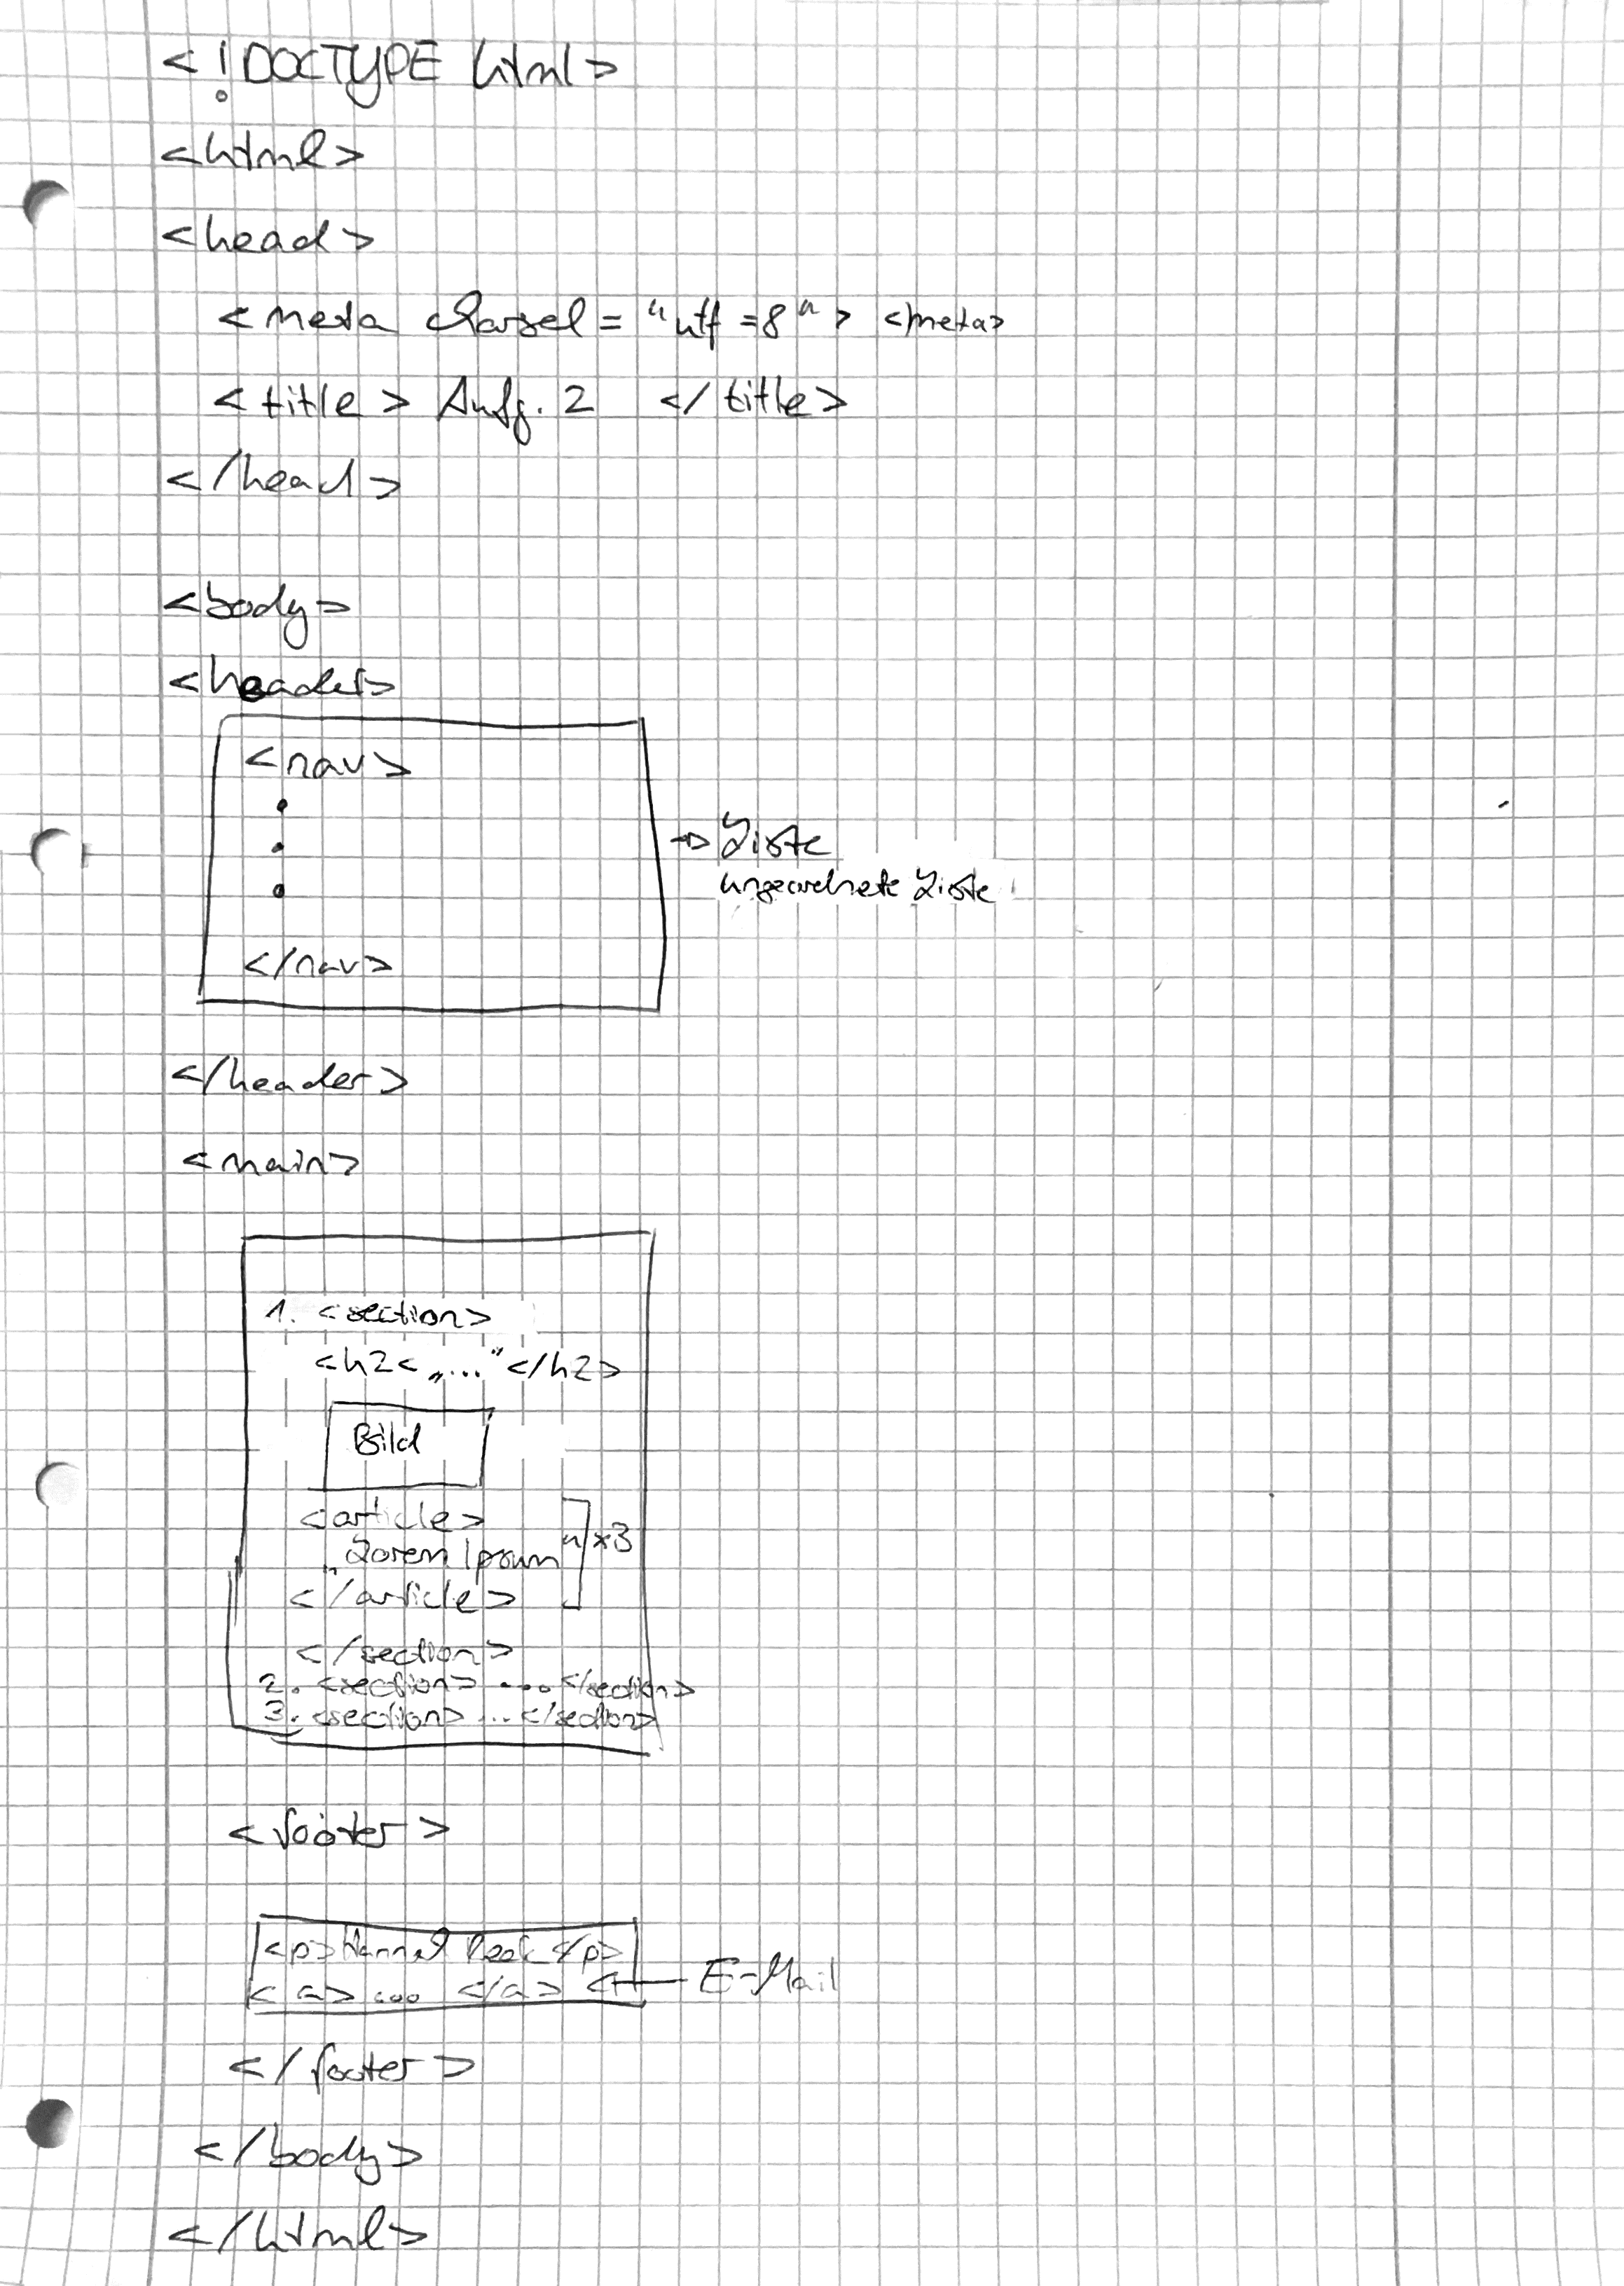 <!DOCTYPE html>
<html>
<head>
<meta charset = "utf =8"> <meta>
<title> Aufg. 2 </title>
</head>
<body>
<header>
<nav>
→ Liste
ungeordnete Liste
</nav>
</header>
<main>
1. <section>
<h2< „..." </h2>
Bild
<article>
„Lorem Ipsum" x3
</article>
</section>
2. <section> ... </section>
3. <section> ... </section>
<footer>
<p> </p>
<a> ... </a> ← E-Mail
</footer>
</body>
</html>